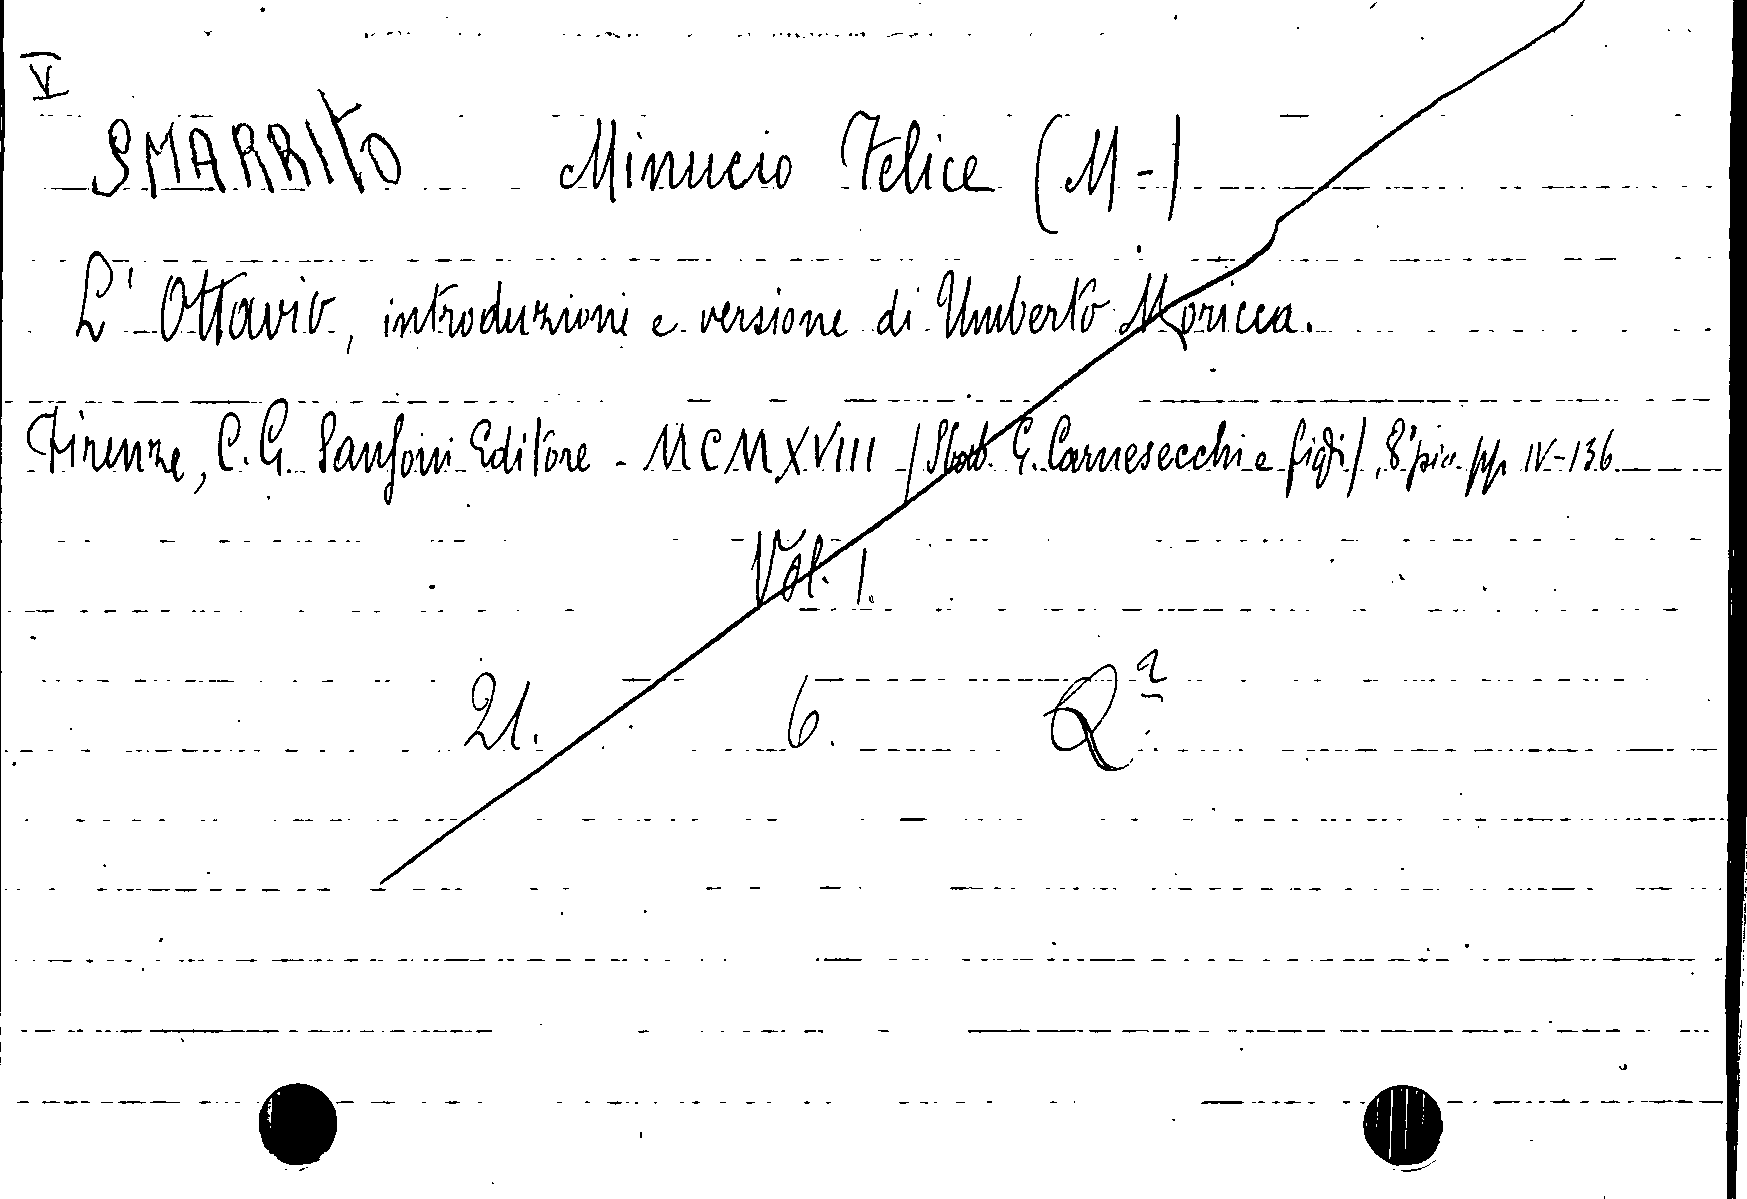 V
SMARRITO Minucio Felice (M-)
L'Ottavio, introduzione e versione di Umberto Moricca.
Firenze, C. G. Sansoni Editore - MCMXVIII (Stab. G. Carnesecchi e figli), 8° pic. pp. IV-136
Vol. 1.
21. 6. Q²